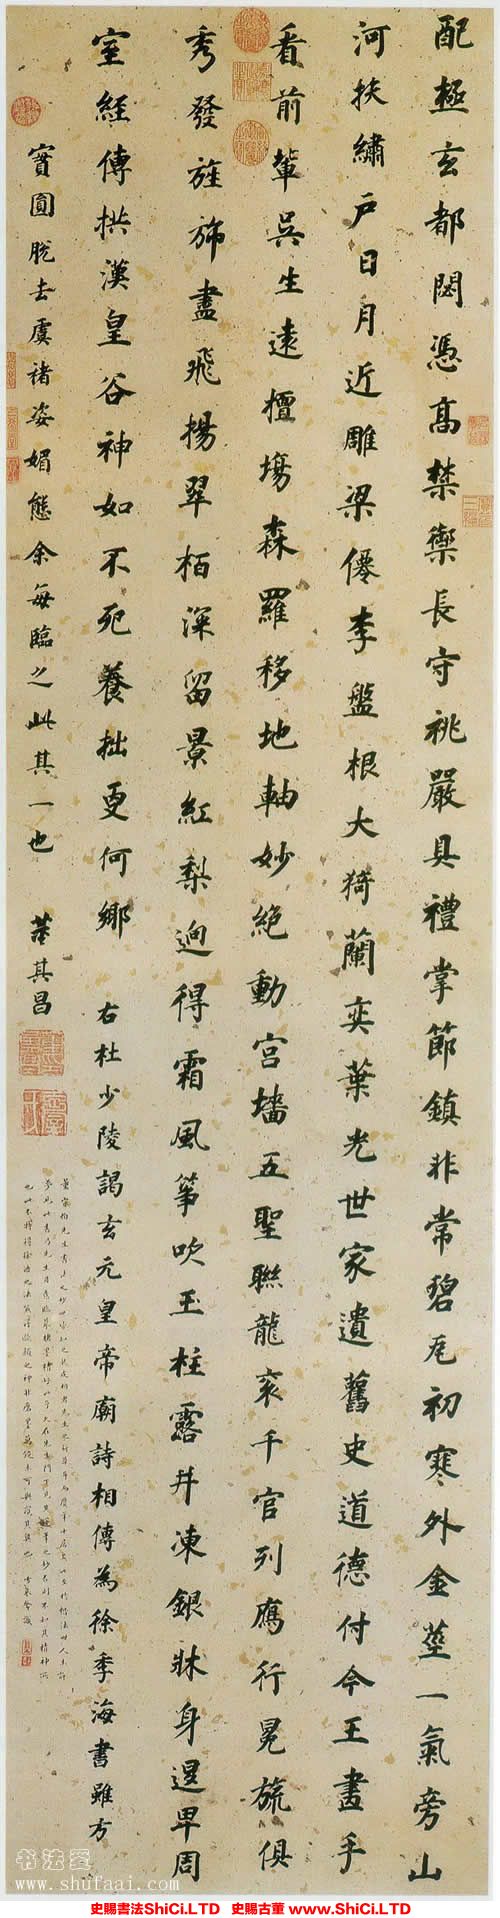 配極玄都閟憑高禁禦長守祧嚴具禮掌節鎮非常碧瓦初寒外金莖一氣旁山
河扶繡戶日月近雕梁僊李盤根大猗蘭奕葉光世家遺舊史道德付今王畫手
看前輩吳生遠擅場森羅移地軸妙絕動宮墻五聖聯龍衮千官列鴈行冕旒俱
秀發旌旆盡飛揚翠栢深留景紅梨迥得霜風箏吹玉柱露井凍銀牀身退卑周
室經傳拱漢皇谷神如不死養拙更何鄉 右杜少陵謁玄元皇帝廟詩相傳為徐季海書雖方
實圓脫去虞褚姿媚態余每臨之此其一也 董其昌
书法爱
www.shufaai.com
史賜書法ShiCi.LTD 史賜古董 www.ShiCi.LTD